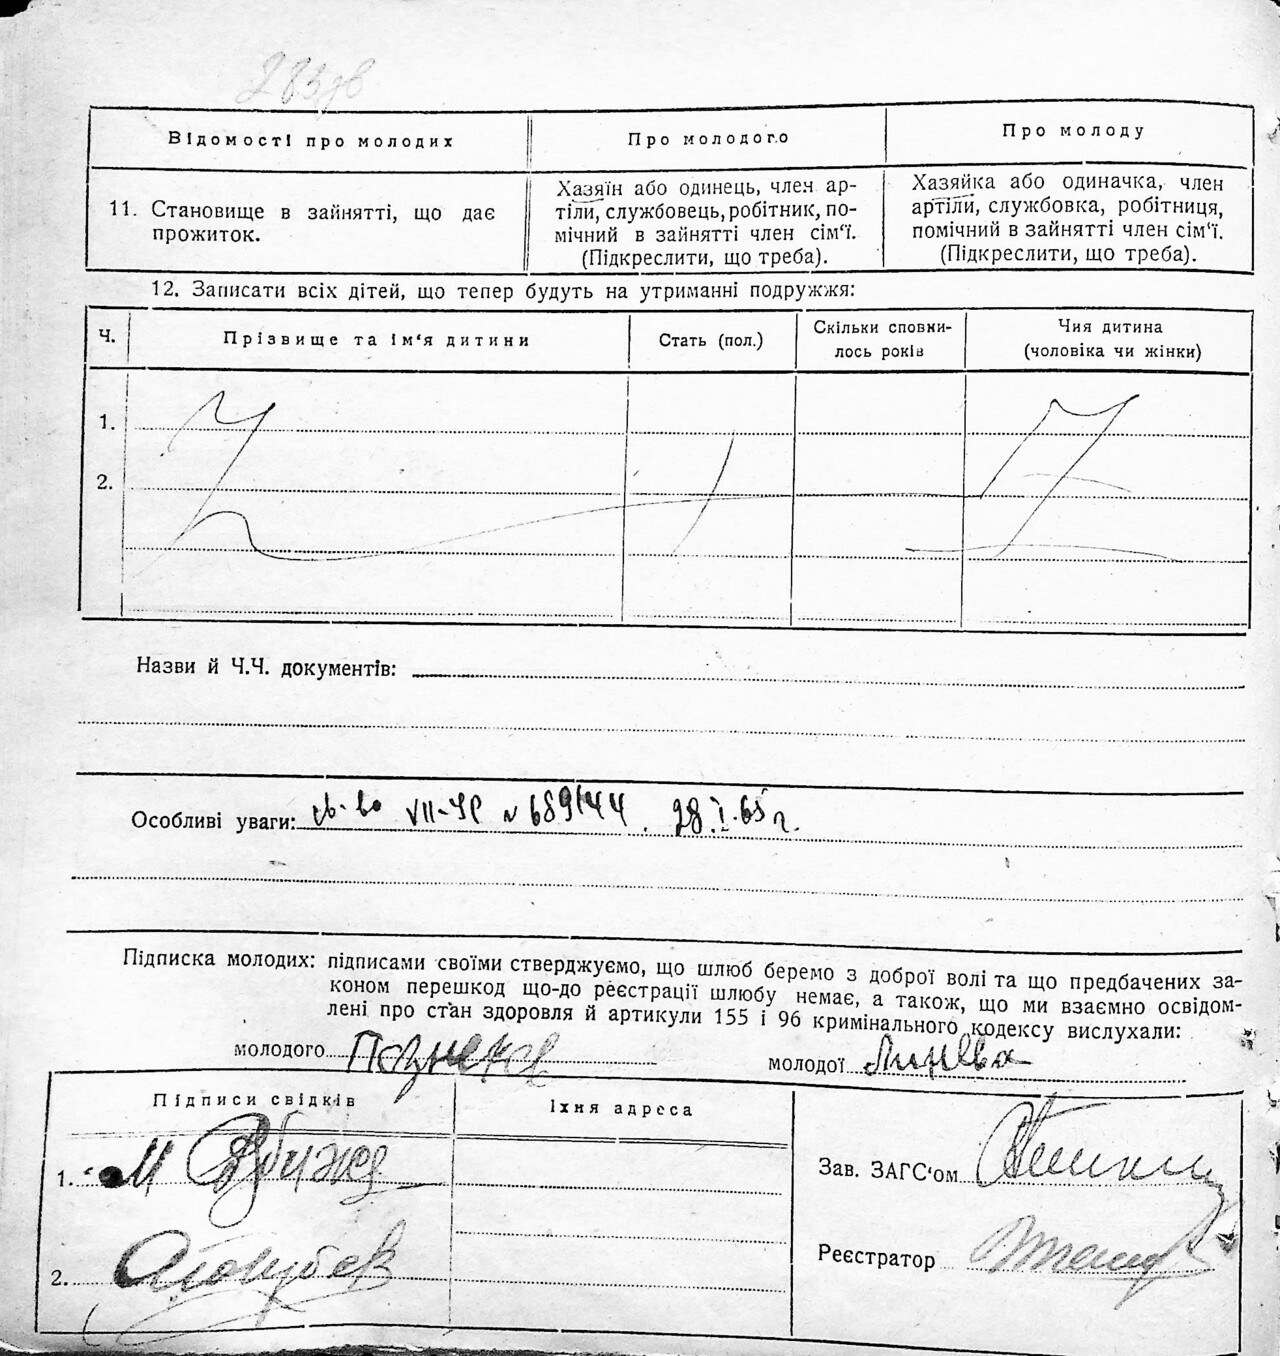 283зв
Відомості про молодих
Про молодого
Про молоду
11. Становище в зайнятті, що дає
прожиток.
Хазяїн або одинець, член ар-
тіли, службовець, робітник, по-
мічний в зайнятті член сім‘ї.
(Підкреслити, що треба).
Хазяйка або одиначка, член
артіли, службовка, робітниця,
помічний в зайнятті член сім‘ї.
(Підкреслити, що треба).
12. Записати всіх дітей, що тепер будуть на утриманні подружжя:
Ч.
Прізвище та ім‘я дитини
Стать (пол.)
Скільки сповни-
лось років
Чия дитина
(чоловіка чи жінки)
1.
2.
Назви й Ч.Ч. документів:
Особливі уваги: св-во VII-УР N 689144. 28.I.65 г.
Підписка молодих: підписами своїми стверджуємо, що шлюб беремо з доброї волі та що предбачених за-
коном перешкод що-до реєстрації шлюбу немає, а також, що ми взаємно освідом-
лені про стан здоровля й артикули 155 і 96 кримінального кодексу вислухали:
молодого
молодої
Підписи свідків
Їхня адреса
1. М
2.
Зав. ЗАГС‘ом
Реєстратор